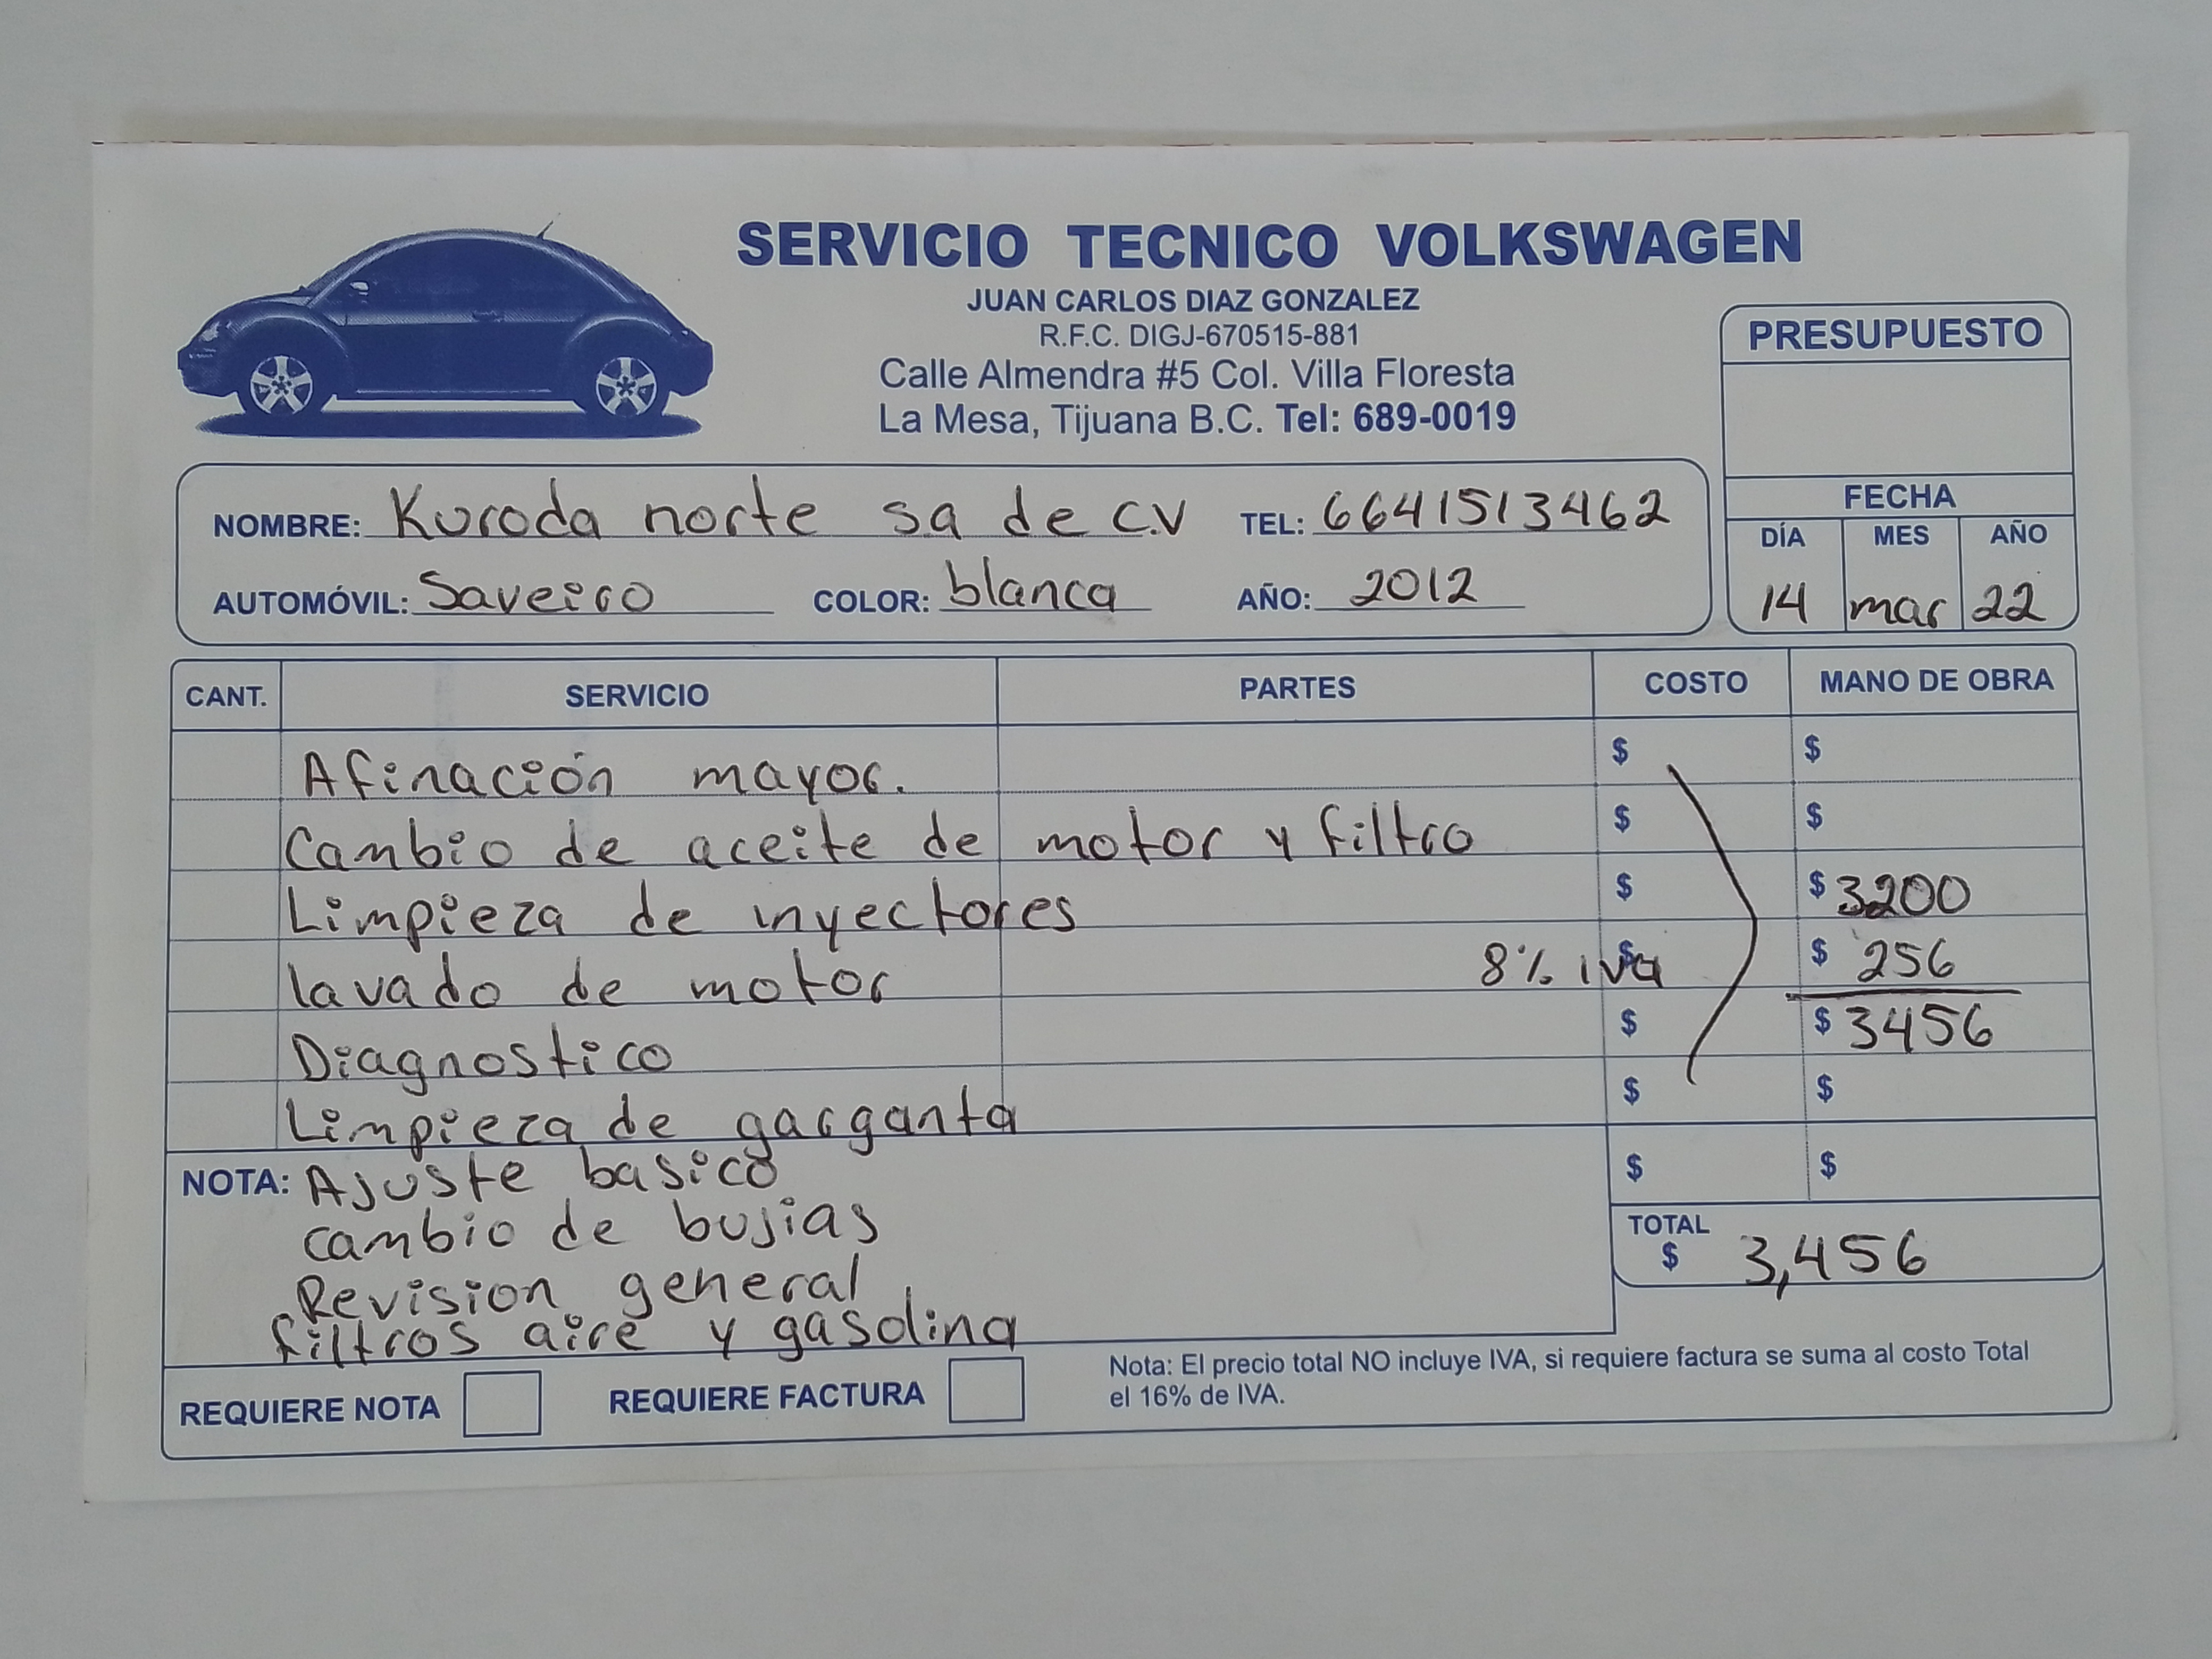 SERVICIO TECNICO VOLKSWAGEN
JUAN CARLOS DIAZ GONZALEZ
R.F.C. DIGJ-670515-881
Calle Almendra #5 Col. Villa Floresta
La Mesa, Tijuana B.C. Tel: 689-0019
PRESUPUESTO
FECHA
DÍA MES AÑO
14 mar 22
NOMBRE: Kuroda norte s.a de c.v TEL: 6641513462
AUTOMÓVIL: Saveiro COLOR: blanca AÑO: 2012
CANT. SERVICIO PARTES COSTO MANO DE OBRA
Afinación mayor. $ $
Cambio de aceite de motor y filtro $ $
Limpieza de inyectores $ $ 3200
lavado de motor 8% iva $ $ 256
Diagnostico $ $ 3456
Limpieza de garganta $ $
NOTA: Ajuste basico $ $
cambio de bujias
Revision general
filtros aire y gasolina
TOTAL
$ 3,456
REQUIERE NOTA REQUIERE FACTURA
Nota: El precio total NO incluye IVA, si requiere factura se suma al costo Total
el 16% de IVA.